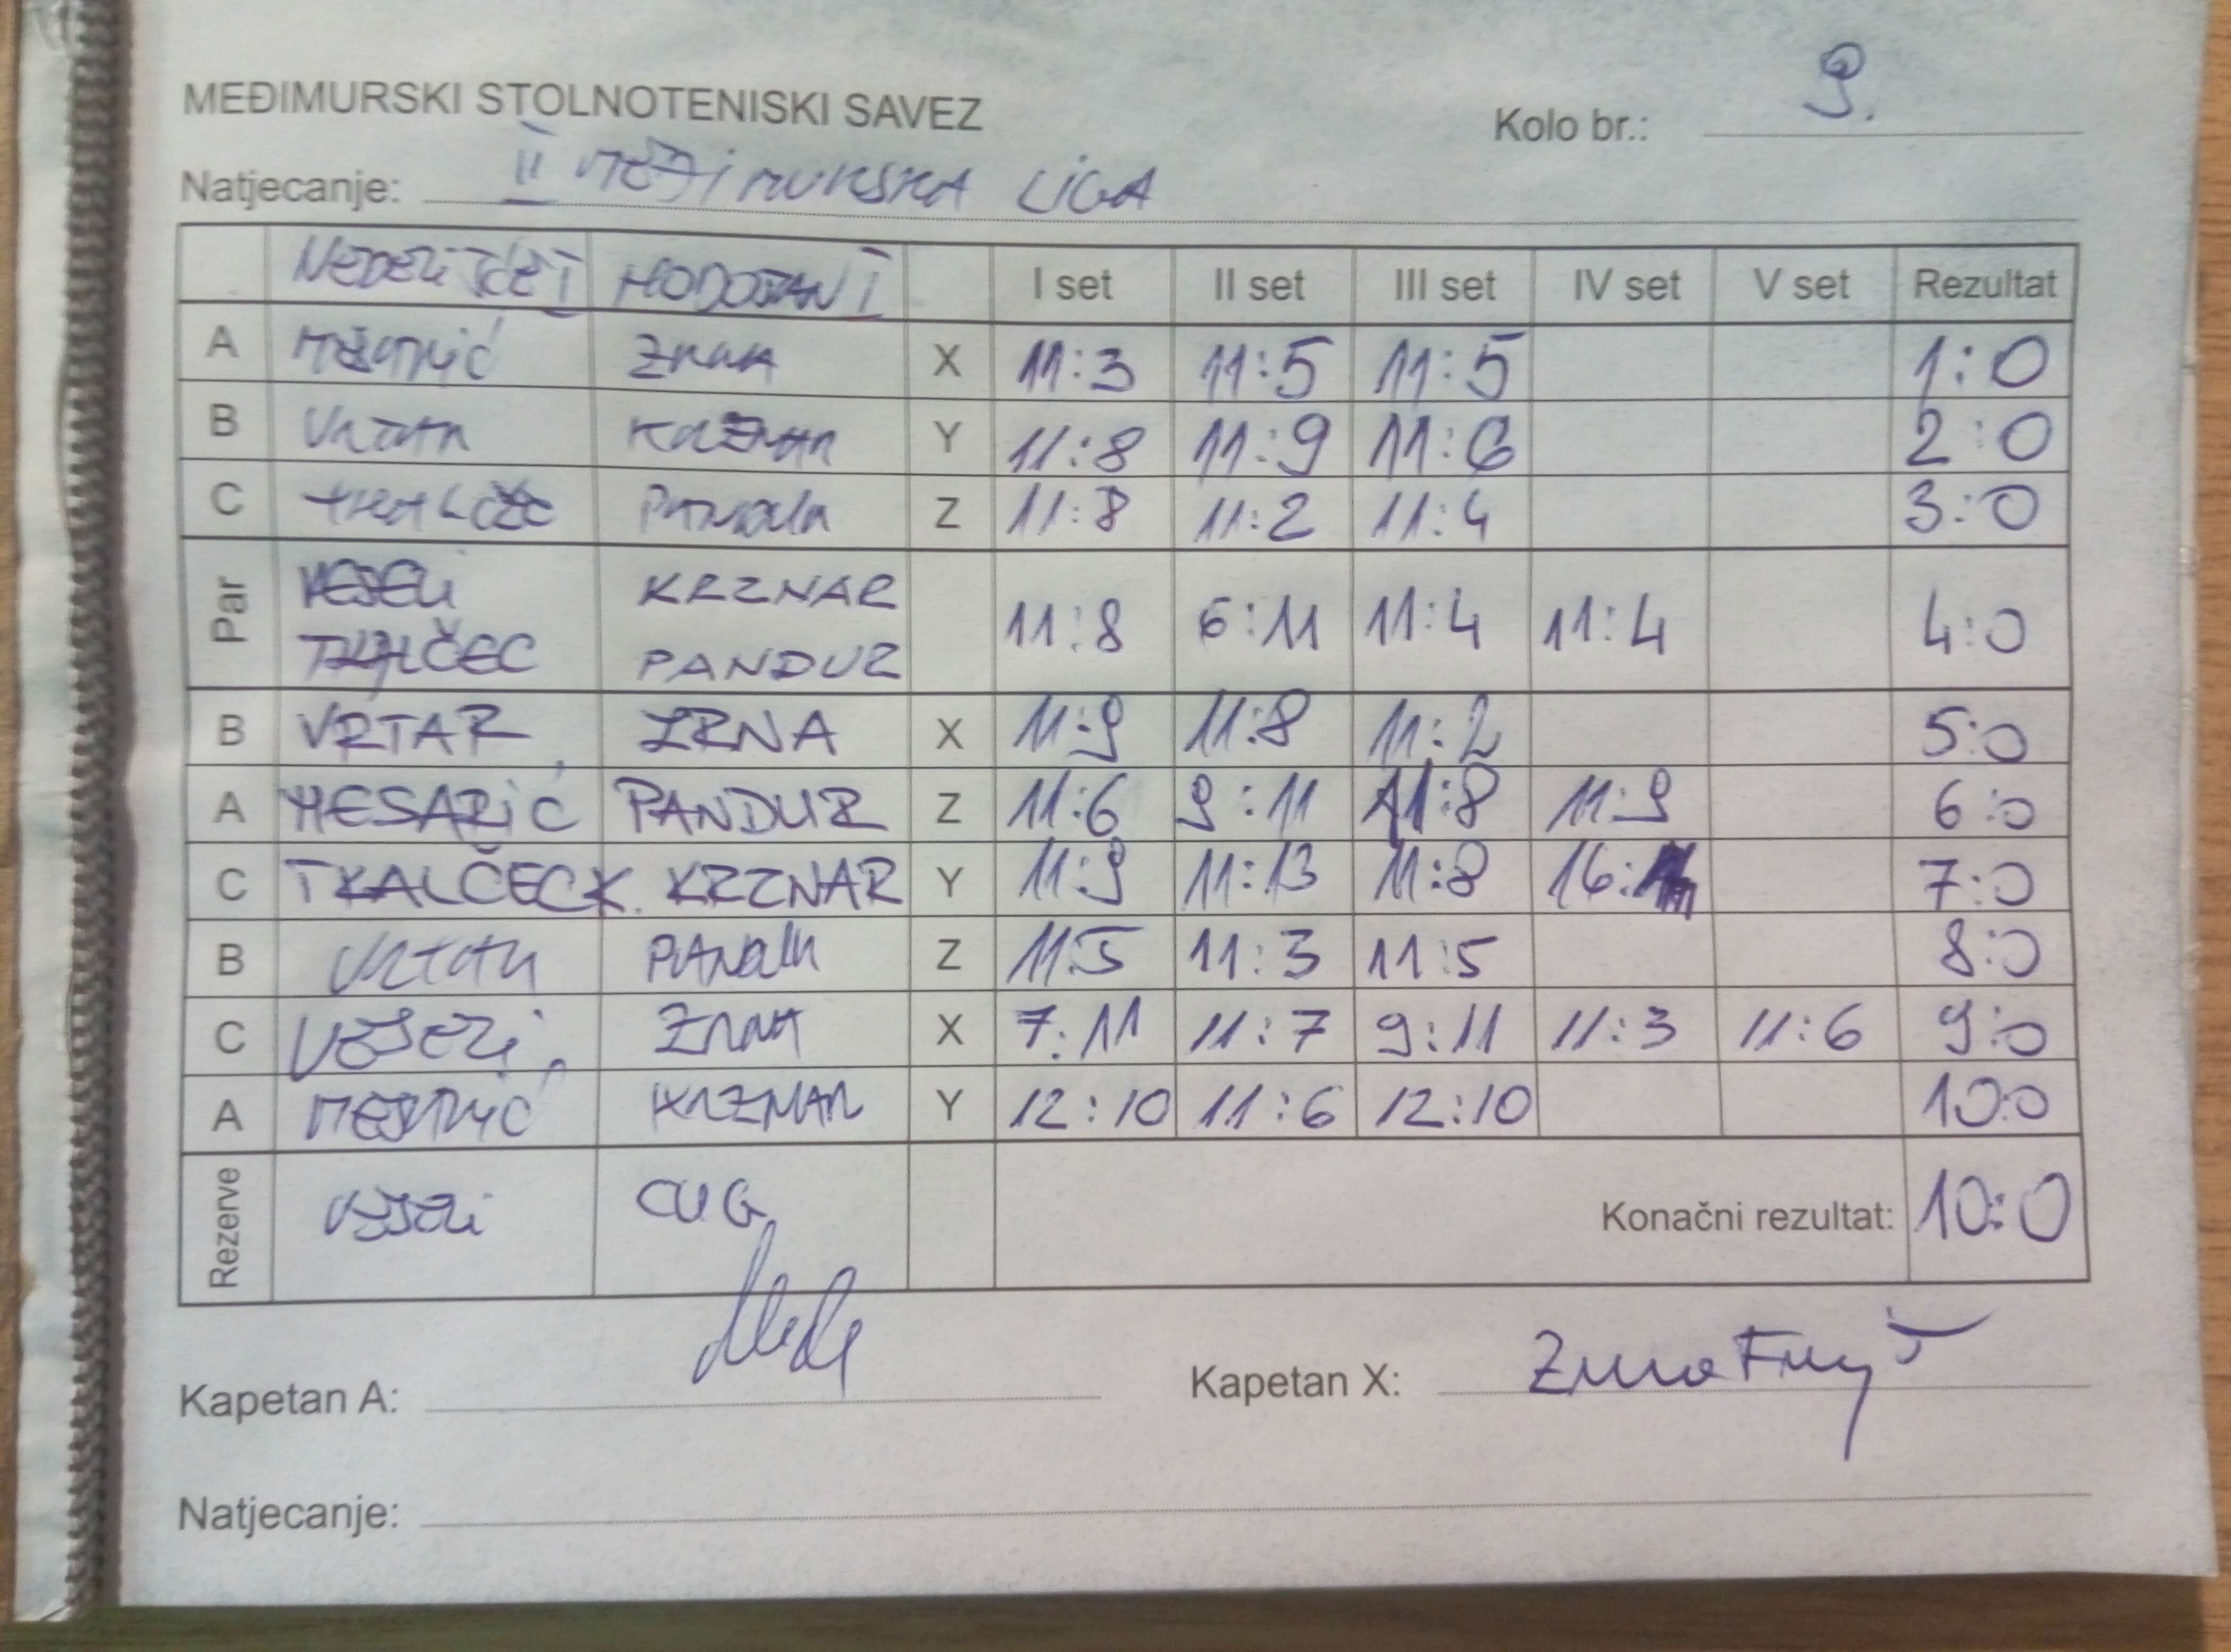 MEĐIMURSKI STOLNOTENISKI SAVEZ
Kolo br.: 9.
Natjecanje: II MEĐIMURSKA LIGA
NEDELIŠĆE I HODOŠAN I I set II set III set IV set V set Rezultat
A MESARIĆ ZRNA X 11:3 11:5 11:5 1:0
B VRTAR KRZNAR Y 11:8 11:9 11:6 2:0
C TKALČEC PANDUR Z 11:8 11:2 11:4 3:0
Par VESELI KRZNAR 11:8 6:11 11:4 11:4 4:0
TKALČEC PANDUR
B VRTAR ZRNA X 11:9 11:8 11:2 5:0
A MESARIĆ PANDUR Z 11:6 9:11 11:8 11:9 6:0
C TKALČEC K. KRZNAR Y 11:9 11:13 11:8 16: 7:0
B VRTAR PANDUR Z 11:5 11:3 11:5 8:0
C VESELI ZRNA X 7:11 11:7 9:11 11:3 11:6 9:0
A MESARIĆ KRZNAR Y 12:10 11:6 12:10 10:0
Rezerve VESELI CUG Konačni rezultat: 10:0
Kapetan A:
Kapetan X: Zrna
Natjecanje: